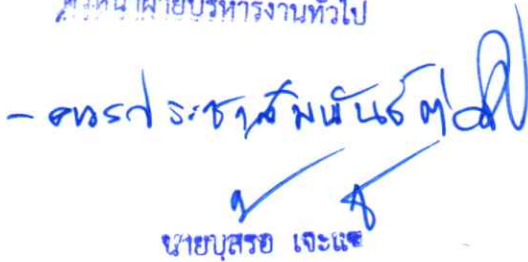 หัวหน้าฝ่ายบริหารงานทั่วไป
- ควรประชาสัมพันธ์ต่อไป
นายบุสรอ เจะแซ